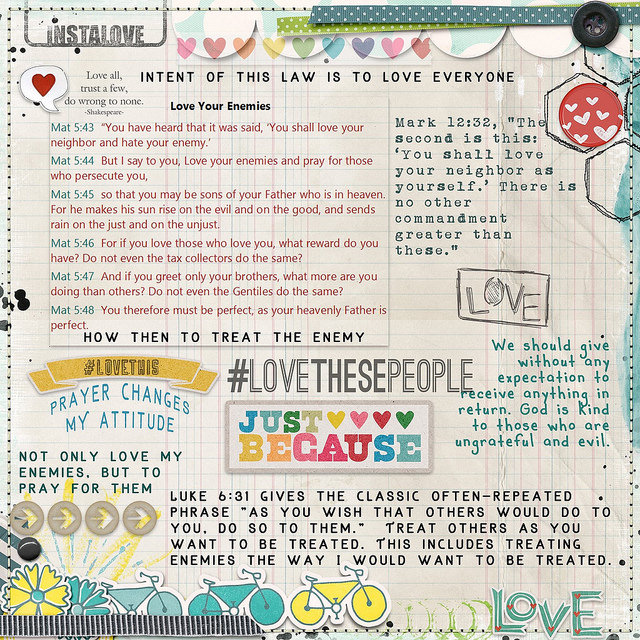 INSTALOVE
Love all,
trust a few,
do wrong to none.
-Shakespeare-
INTENT OF THIS LAW IS TO LOVE EVERYONE
Love Your Enemies
Mat 5:43 "You have heard that it was said, 'You shall love your
neighbor and hate your enemy.'
Mat 5:44 But I say to you, Love your enemies and pray for those
who persecute you,
Mat 5:45 so that you may be sons of your Father who is in heaven.
For he makes his sun rise on the evil and on the good, and sends
rain on the just and on the unjust.
Mat 5:46 For if you love those who love you, what reward do you
have? Do not even the tax collectors do the same?
Mat 5:47 And if you greet only your brothers, what more are you
doing than others? Do not even the Gentiles do the same?
Mat 5:48 You therefore must be perfect, as your heavenly Father is
perfect.
Mark 12:32, "The
second is this:
'You shall love
your neighbor as
yourself.' There is
no other
commandment
greater than
these."
LOVE
HOW THEN TO TREAT THE ENEMY
#LOVETHIS
PRAYER CHANGES
MY ATTITUDE
#LOVETHESEPEOPLE
JUST
BECAUSE
We should give
without any
expectation to
receive anything in
return. God is Kind
to those who are
ungrateful and evil.
NOT ONLY LOVE MY
ENEMIES, BUT TO
PRAY FOR THEM
LUKE 6:31 GIVES THE CLASSIC OFTEN-REPEATED
PHRASE "AS YOU WISH THAT OTHERS WOULD DO TO
YOU, DO SO TO THEM." TREAT OTHERS AS YOU
WANT TO BE TREATED. THIS INCLUDES TREATING
ENEMIES THE WAY I WOULD WANT TO BE TREATED.
LOVE